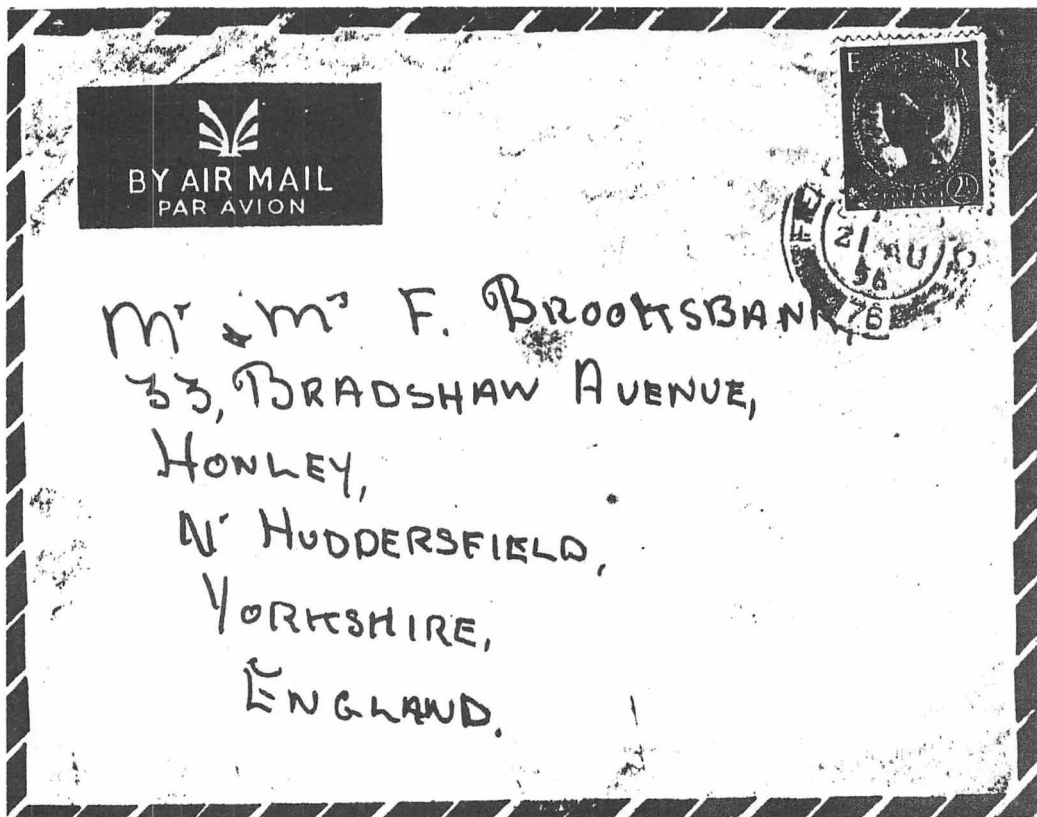 BY AIR MAIL
PAR AVION
E R
2½
FE
21 AU
56
76
Mr & Mrs F. BROOKSBANK,
33, BRADSHAW AVENUE,
HONLEY,
Nr HUDDERSFIELD,
YORKSHIRE,
ENGLAND.